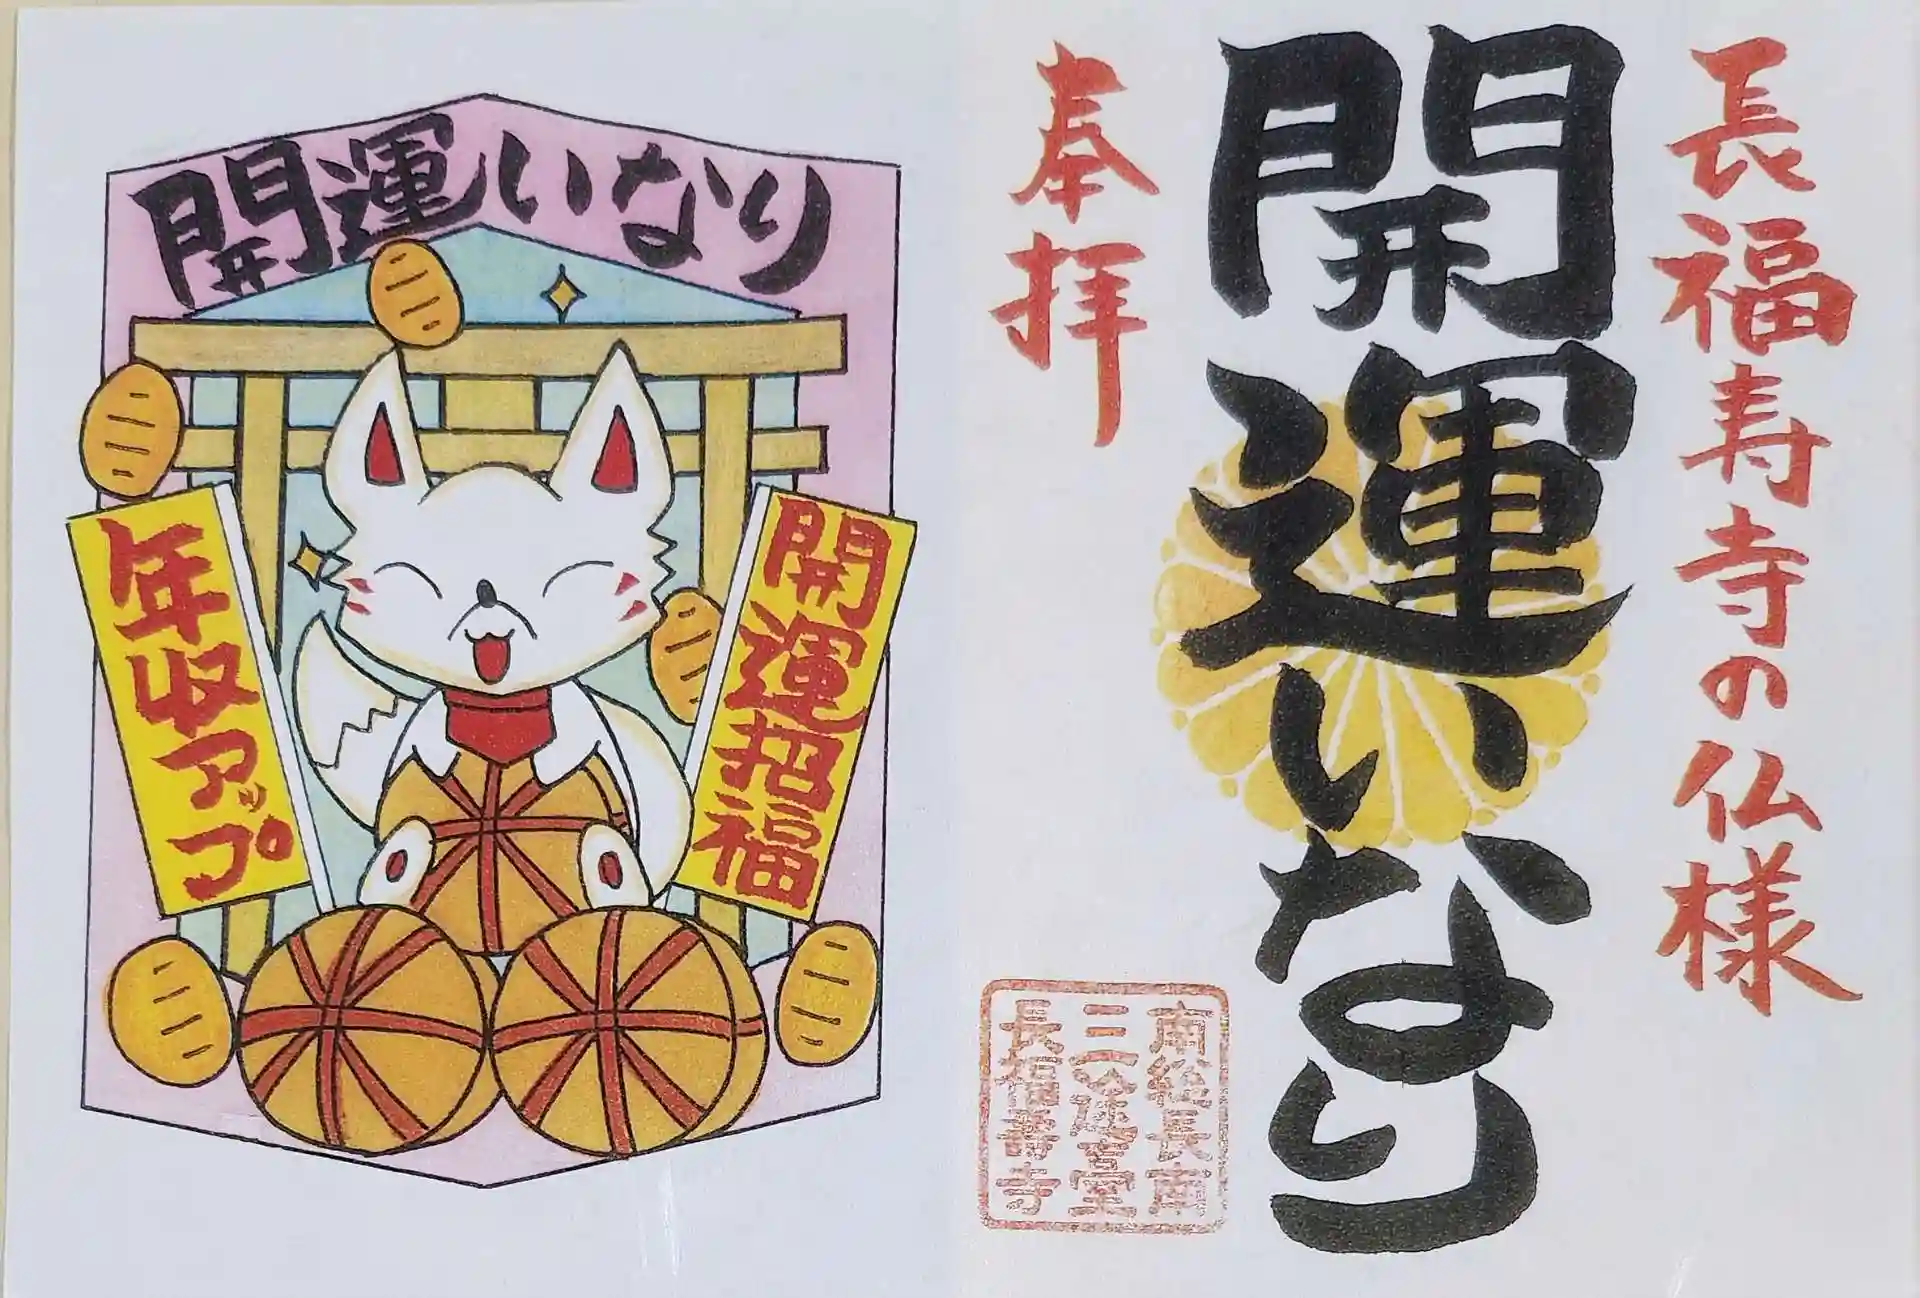 開運いなり
開運招福
年収アップ
長福寿寺の仏様
開運いなり
奉拝
南総長南
三途河堂
長福寿寺